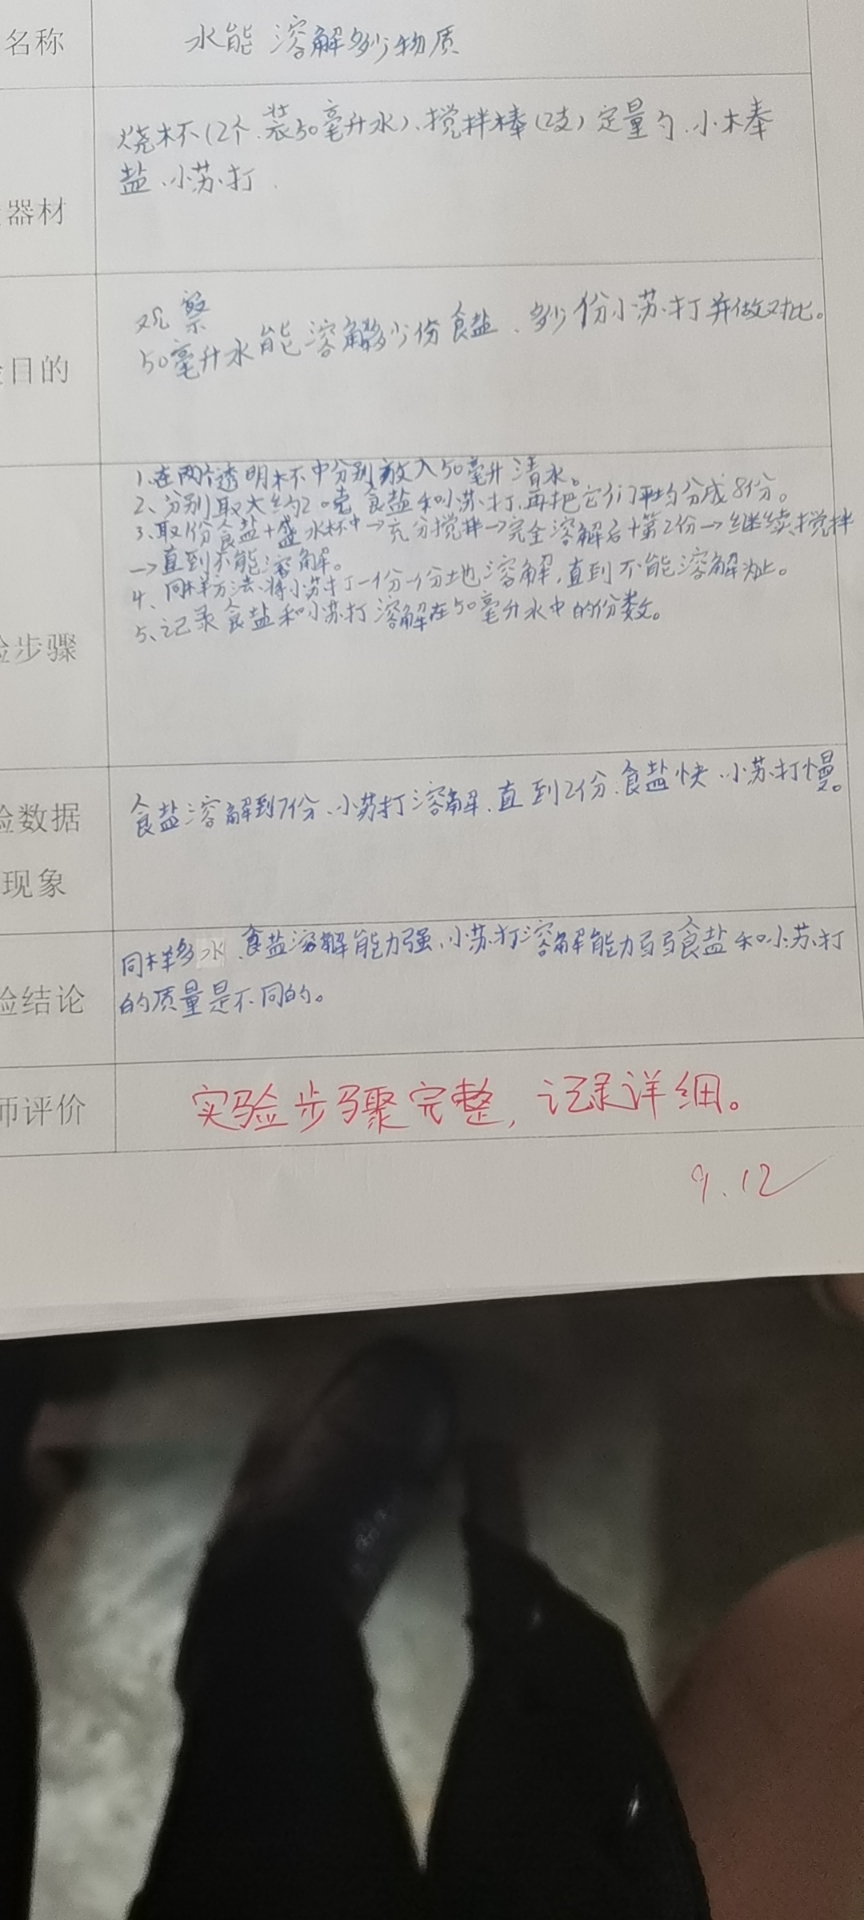 名称
水能溶解多少物质
烧杯(2个.装50毫升水)、搅拌棒(2支)定量勺.小木棒
盐.小苏打.
器材
观察
50毫升水能溶解多少份食盐、多少份小苏打并做对比。
目的
1.在两个透明杯中分别放入50毫升清水。
2、分别取大约20克食盐和小苏打,再把它们平均分成8份。
3、取份食盐+盛水杯中→充分搅拌→完全溶解后+第2份→继续搅拌
→直到不能溶解。
4、同样方法、将小苏打一份一份地溶解,直到不能溶解为止。
5、记录食盐和小苏打溶解在50毫升水中的份数。
验步骤
食盐溶解到7份、小苏打溶解、直到2份、食盐快、小苏打慢。
验数据
现象
同样多水、食盐溶解能力强、小苏打溶解能力弱食盐和小苏打
的质量是不同的。
验结论
师评价
实验步骤完整,记录详细。
9.12